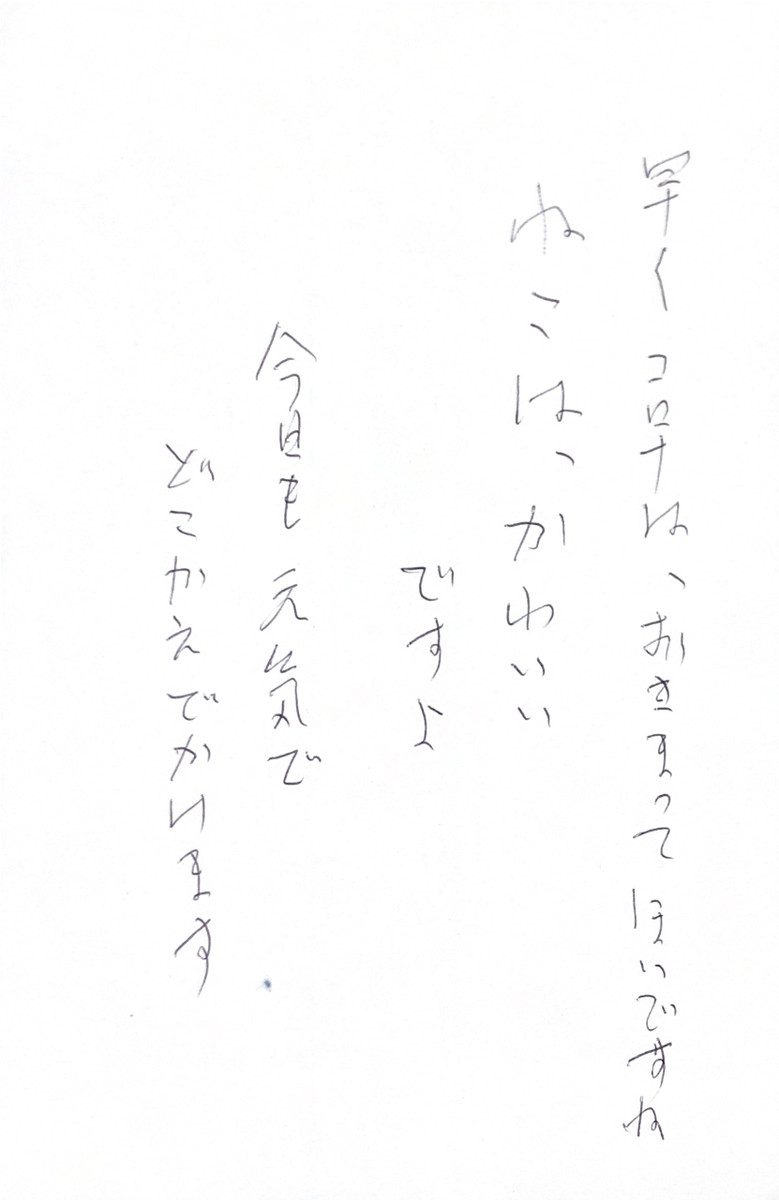 早くコロナは、おさまってほいですね
ねこは、かわいい
ですよ
今日も元気で
どこかえでかけます